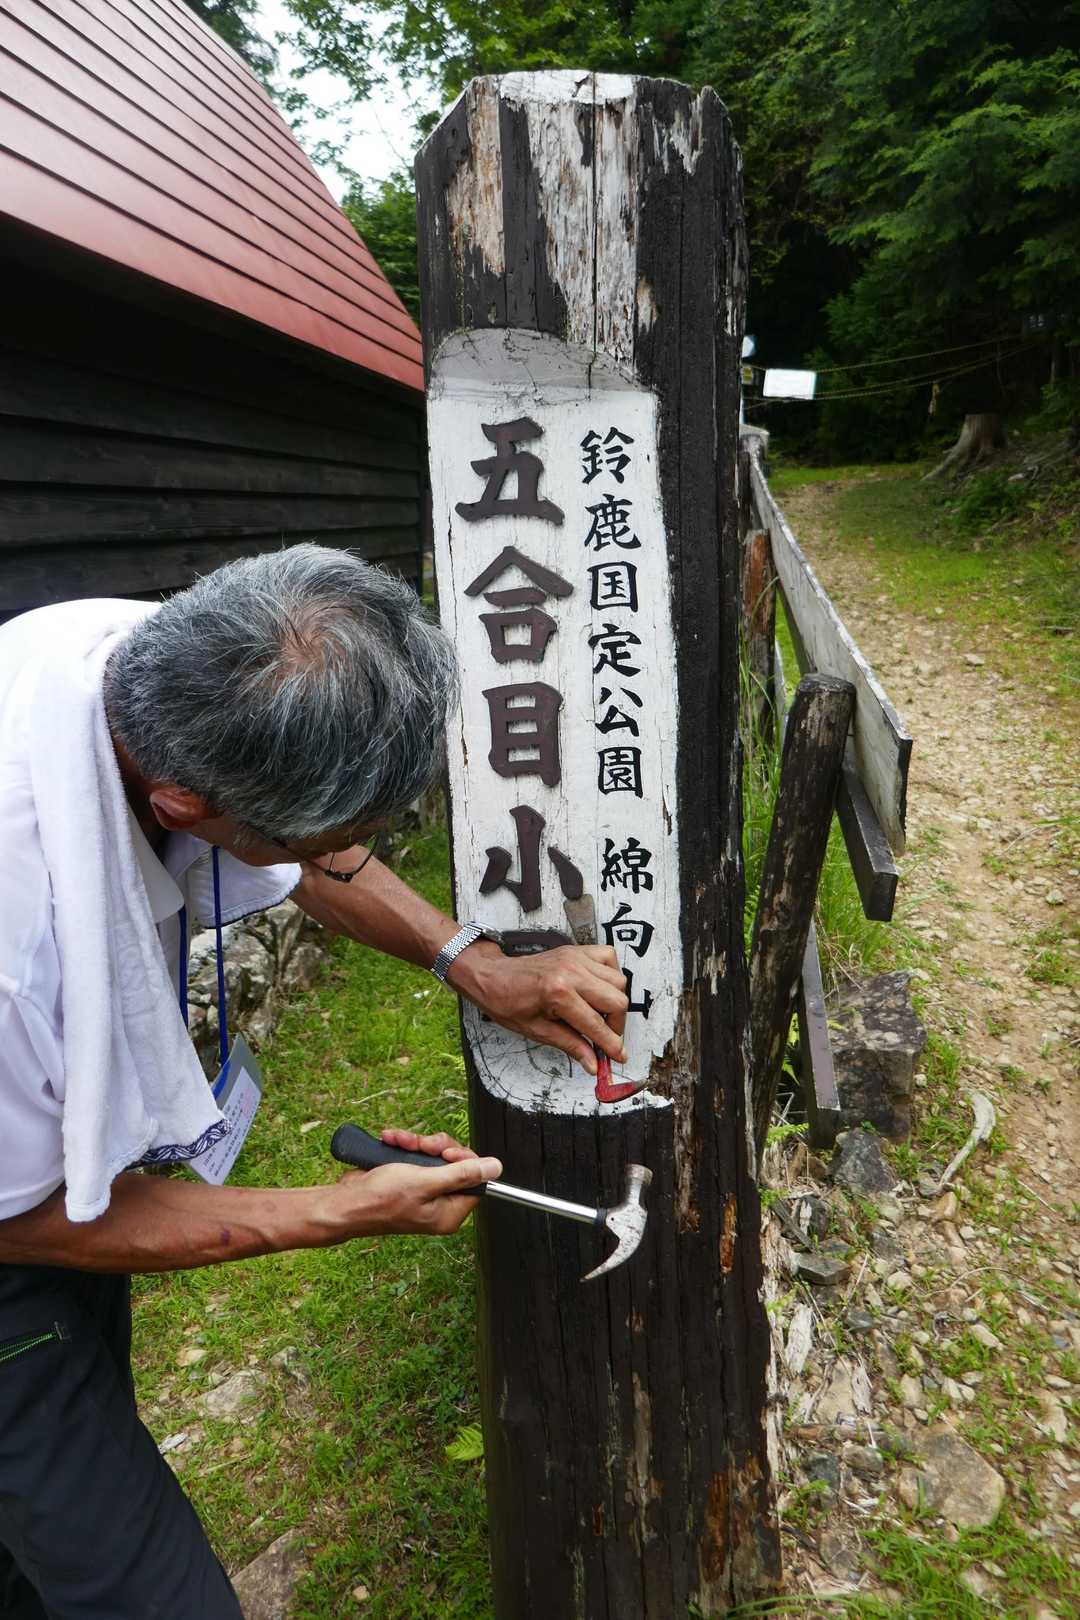 鈴鹿国定公園 綿向山
五合目小